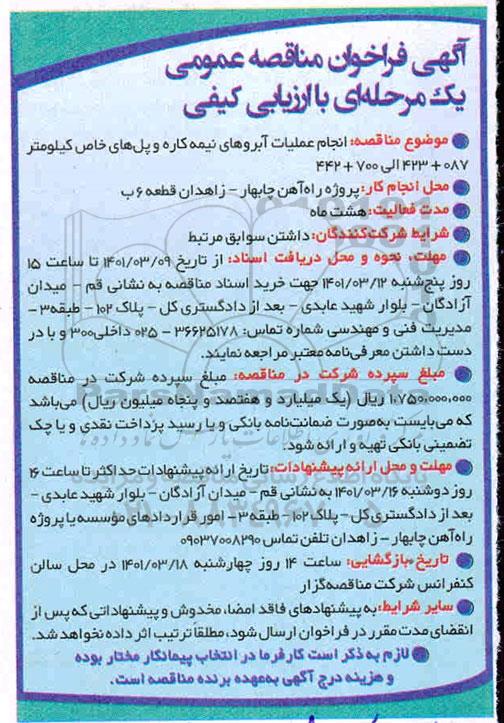 آگهی فراخوان مناقصه عمومی
یک مرحله‌ای با ارزیابی کیفی
موضوع مناقصه: انجام عملیات آبروهای نیمه کاره و پل‌های خاص کیلومتر
۰۸۷ + ۴۲۳ الی ۷۰۰ + ۴۴۲
محل انجام کار: پروژه راه‌آهن چابهار – زاهدان قطعه ۶ ب
مدت فعالیت: هشت ماه
شرایط شرکت‌کنندگان: داشتن سوابق مرتبط
مهلت، نحوه و محل دریافت اسناد: از تاریخ ۱۴۰۱/۰۳/۰۹ تا ساعت ۱۵
روز پنج‌شنبه ۱۴۰۱/۰۳/۱۲ جهت خرید اسناد مناقصه به نشانی قم – میدان
آزادگان – بلوار شهید عابدی – بعد از دادگستری کل – پلاک ۱۰۲ – طبقه ۳ –
مدیریت فنی و مهندسی شماره تماس: ۳۶۶۲۵۱۷۸ – ۰۲۵ داخلی ۳۰۰ و با در
دست داشتن معرفی‌نامه معتبر مراجعه نمایند.
مبلغ سپرده شرکت در مناقصه: مبلغ سپرده شرکت در مناقصه
۱.۷۵۰.۰۰۰.۰۰۰ ریال (یک میلیارد و هفتصد و پنجاه میلیون ریال) می‌باشد
که می‌بایست به‌صورت ضمانت‌نامه بانکی و یا رسید پرداخت نقدی و یا چک
تضمینی بانکی تهیه و ارائه شود.
مهلت و محل ارائه پیشنهادات: تاریخ ارائه پیشنهادات حداکثر تا ساعت ۱۶
روز دوشنبه ۱۴۰۱/۰۳/۱۶ به نشانی قم – میدان آزادگان – بلوار شهید عابدی –
بعد از دادگستری کل – پلاک ۱۰۲ – طبقه ۳ – امور قراردادهای موسسه یا پروژه
راه‌آهن چابهار – زاهدان تلفن تماس ۰۹۰۳۷۰۰۸۲۹۰
تاریخ بازگشایی: ساعت ۱۴ روز چهارشنبه ۱۴۰۱/۰۳/۱۸ در محل سالن
کنفرانس شرکت مناقصه‌گزار
سایر شرایط: به پیشنهادهای فاقد امضا، مخدوش و پیشنهاداتی که پس از
انقضای مدت مقرر در فراخوان ارسال شود، مطلقا ترتیب اثر داده نخواهد شد.
لازم به ذکر است کارفرما در انتخاب پیمانکار مختار بوده
و هزینه درج آگهی به‌عهده برنده مناقصه است.